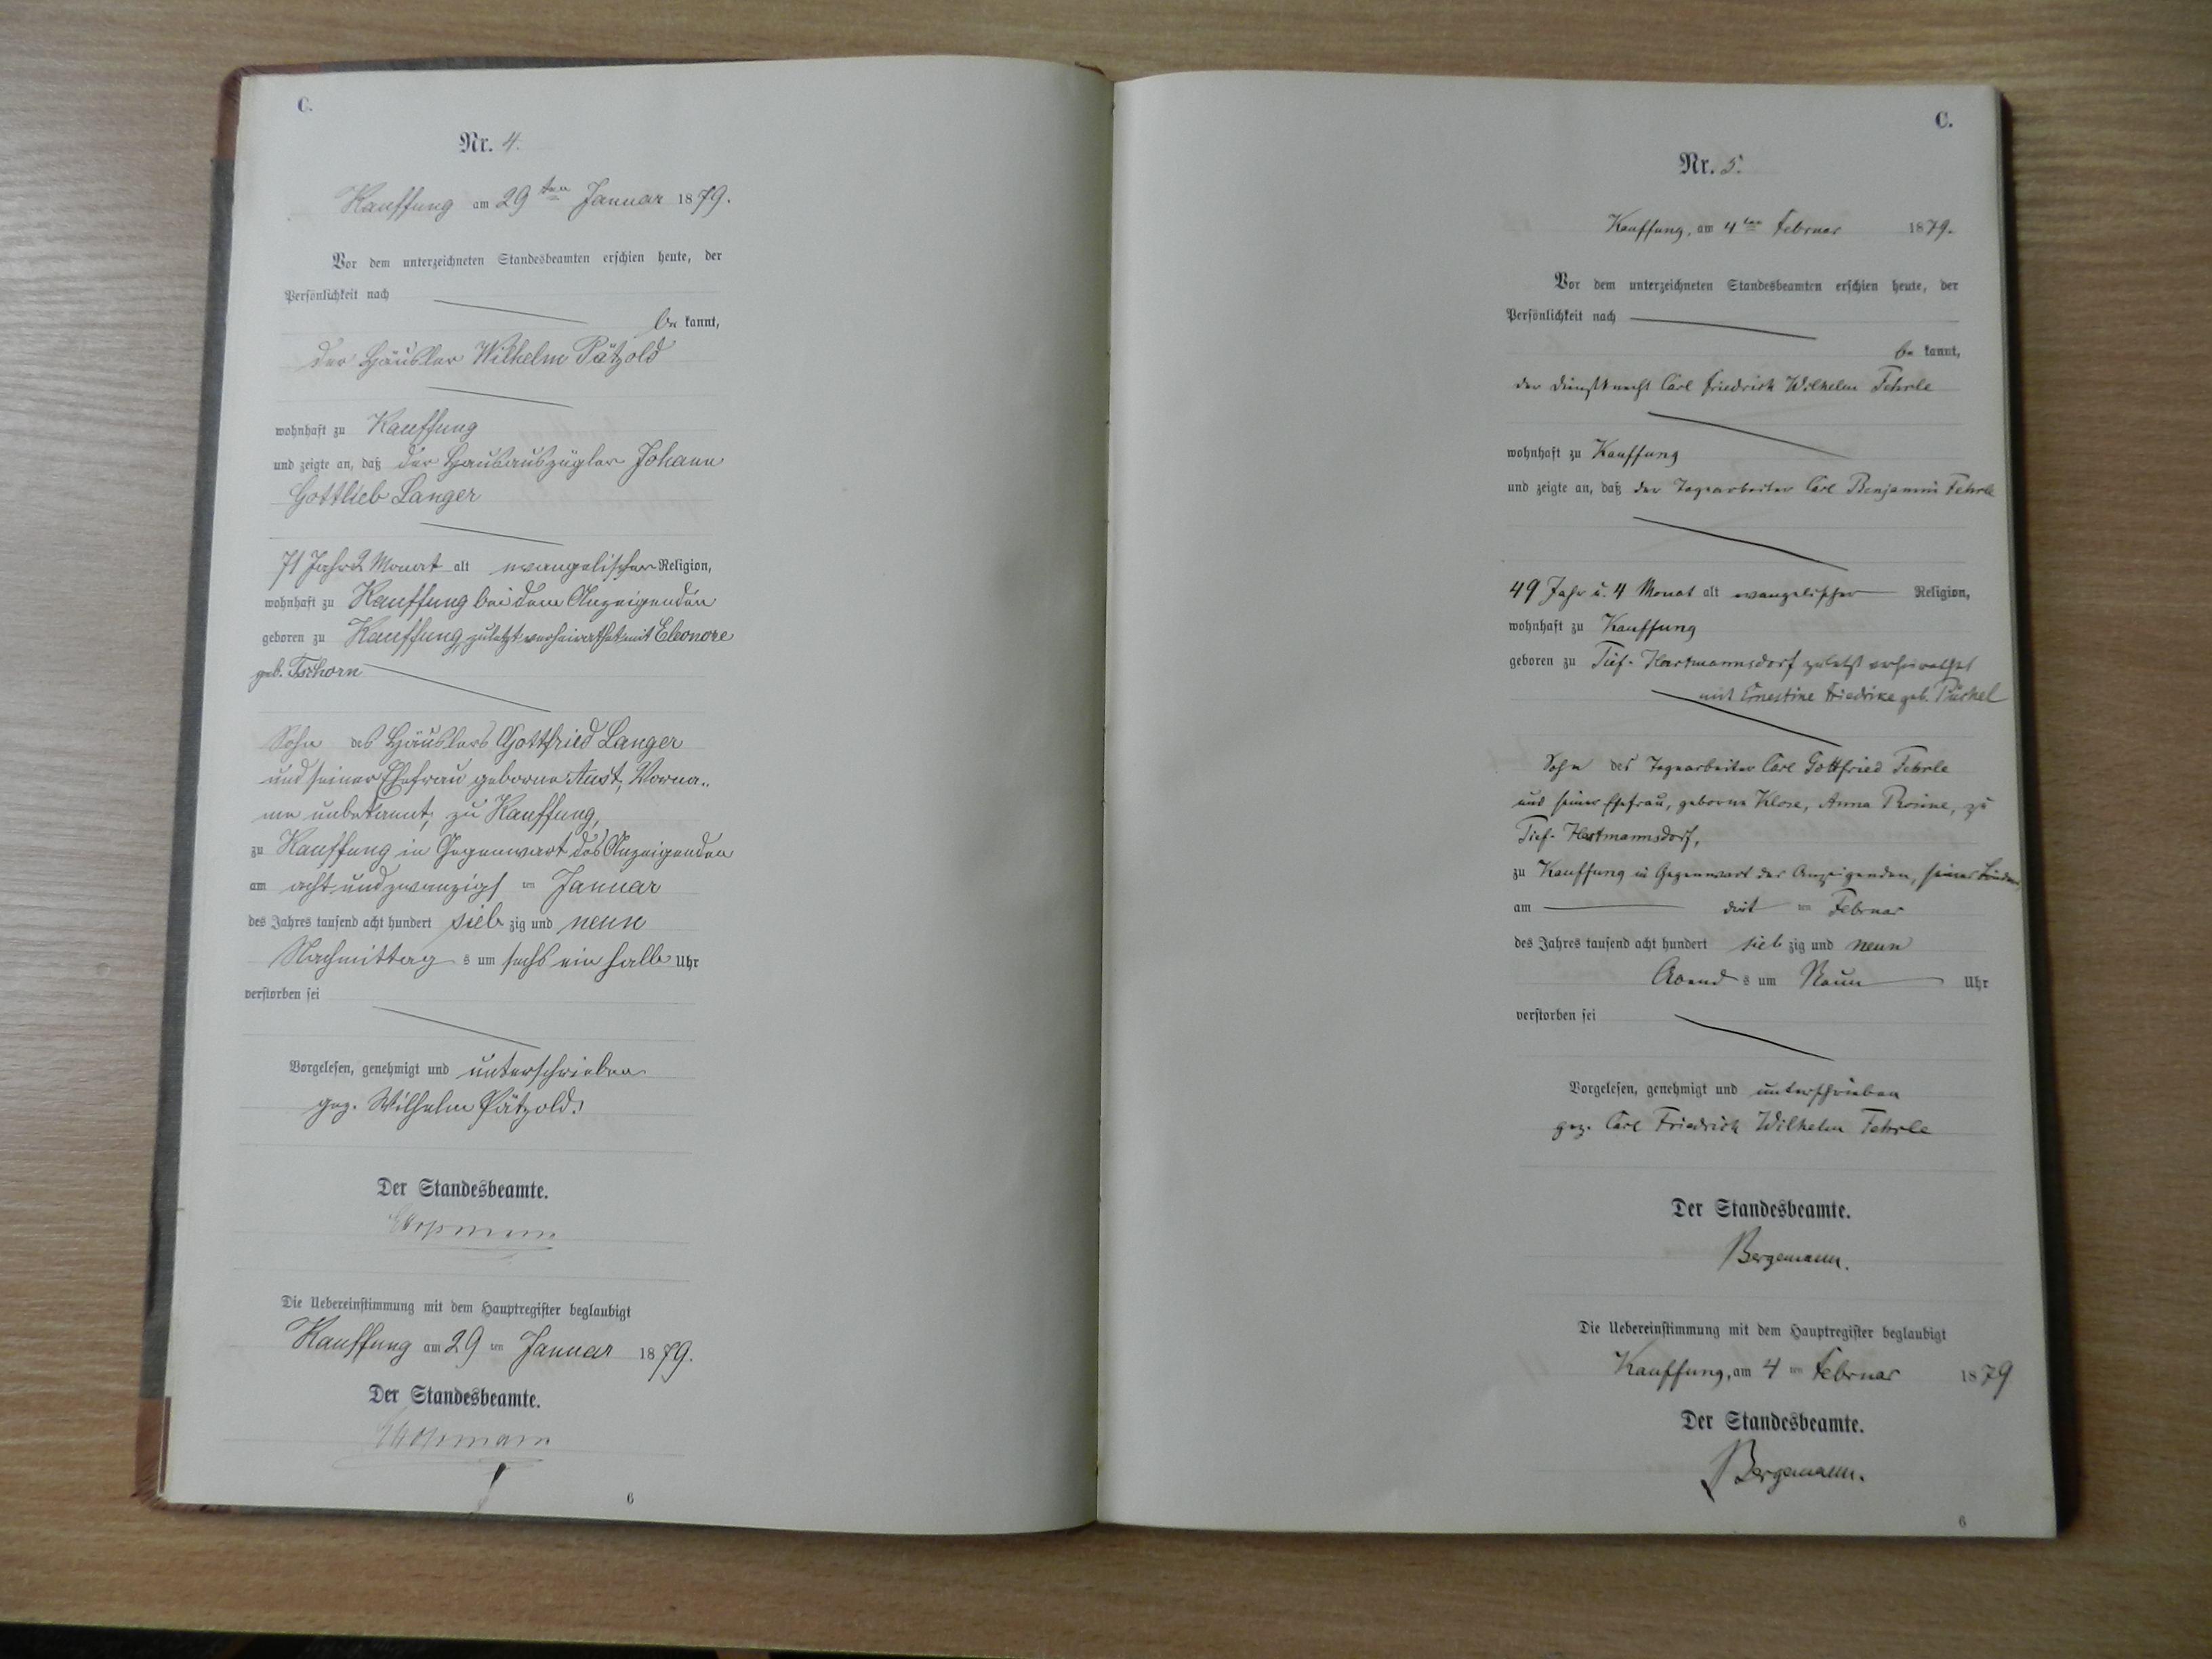 C.
Nr. 4.
Kauffung am 29ten Januar 1879.
Vor dem unterzeichneten Standesbeamten erschien heute, der
Persönlichkeit nach
be kannt,
der Häusler Wilhelm Pätzold
wohnhaft zu Kauffung
und zeigte an, daß der Hausauszügler Johann
Gottlieb Langer
71 Jahr 2 Monat alt evangelischer Religion,
wohnhaft zu Kauffung bei dem Anzeigenden
geboren zu Kauffung, zuletzt verheirathet mit Eleonore
geb. Tschorn
Sohn des Häuslers Gottfried Langer
und seiner Ehefrau geborne Aust, Vorna-
me unbekannt, zu Kauffung,
zu Kauffung in Gegenwart des Anzeigenden
am acht und zwanzigs ten Januar
des Jahres tausend acht hundert sieb zig und neun
Nachmittag s um sechs ein halb Uhr
verstorben sei
Vorgelesen, genehmigt und unterschrieben
gez. Wilhelm Pätzold.
Der Standesbeamte.
Die Uebereinstimmung mit dem Hauptregister beglaubigt
Kauffung am 29 ten Januar 1879.
Der Standesbeamte.
6
C.
Nr. 5.
Kauffung, am 4ten Februar 1879.
Vor dem unterzeichneten Standesbeamten erschien heute, der
Persönlichkeit nach
be kannt,
der Dienstknecht Carl Friedrich Wilhelm Fehrle
wohnhaft zu Kauffung
und zeigte an, daß der Tagearbeiter Carl Benjamin Fehrle
49 Jahr u. 4 Monat alt evangelischer Religion,
wohnhaft zu Kauffung
geboren zu Tief-Hartmannsdorf zuletzt verheirathet
mit Ernestine Friedrike geb. Püschel
Sohn des Tagearbeiter Carl Gottfried Fehrle
und seiner Ehefrau, geborne Klose, Anna Rosine, zu
Tief-Hartmannsdorf,
zu Kauffung in Gegenwart des Anzeigenden, seines
am drit ten Februar
des Jahres tausend acht hundert sieb zig und neun
Abend s um Neun Uhr
verstorben sei
Vorgelesen, genehmigt und unterschrieben
gez. Carl Friedrich Wilhelm Fehrle
Der Standesbeamte.
Bergemann.
Die Uebereinstimmung mit dem Hauptregister beglaubigt
Kauffung, am 4 ten Februar 1879
Der Standesbeamte.
Bergemann.
6